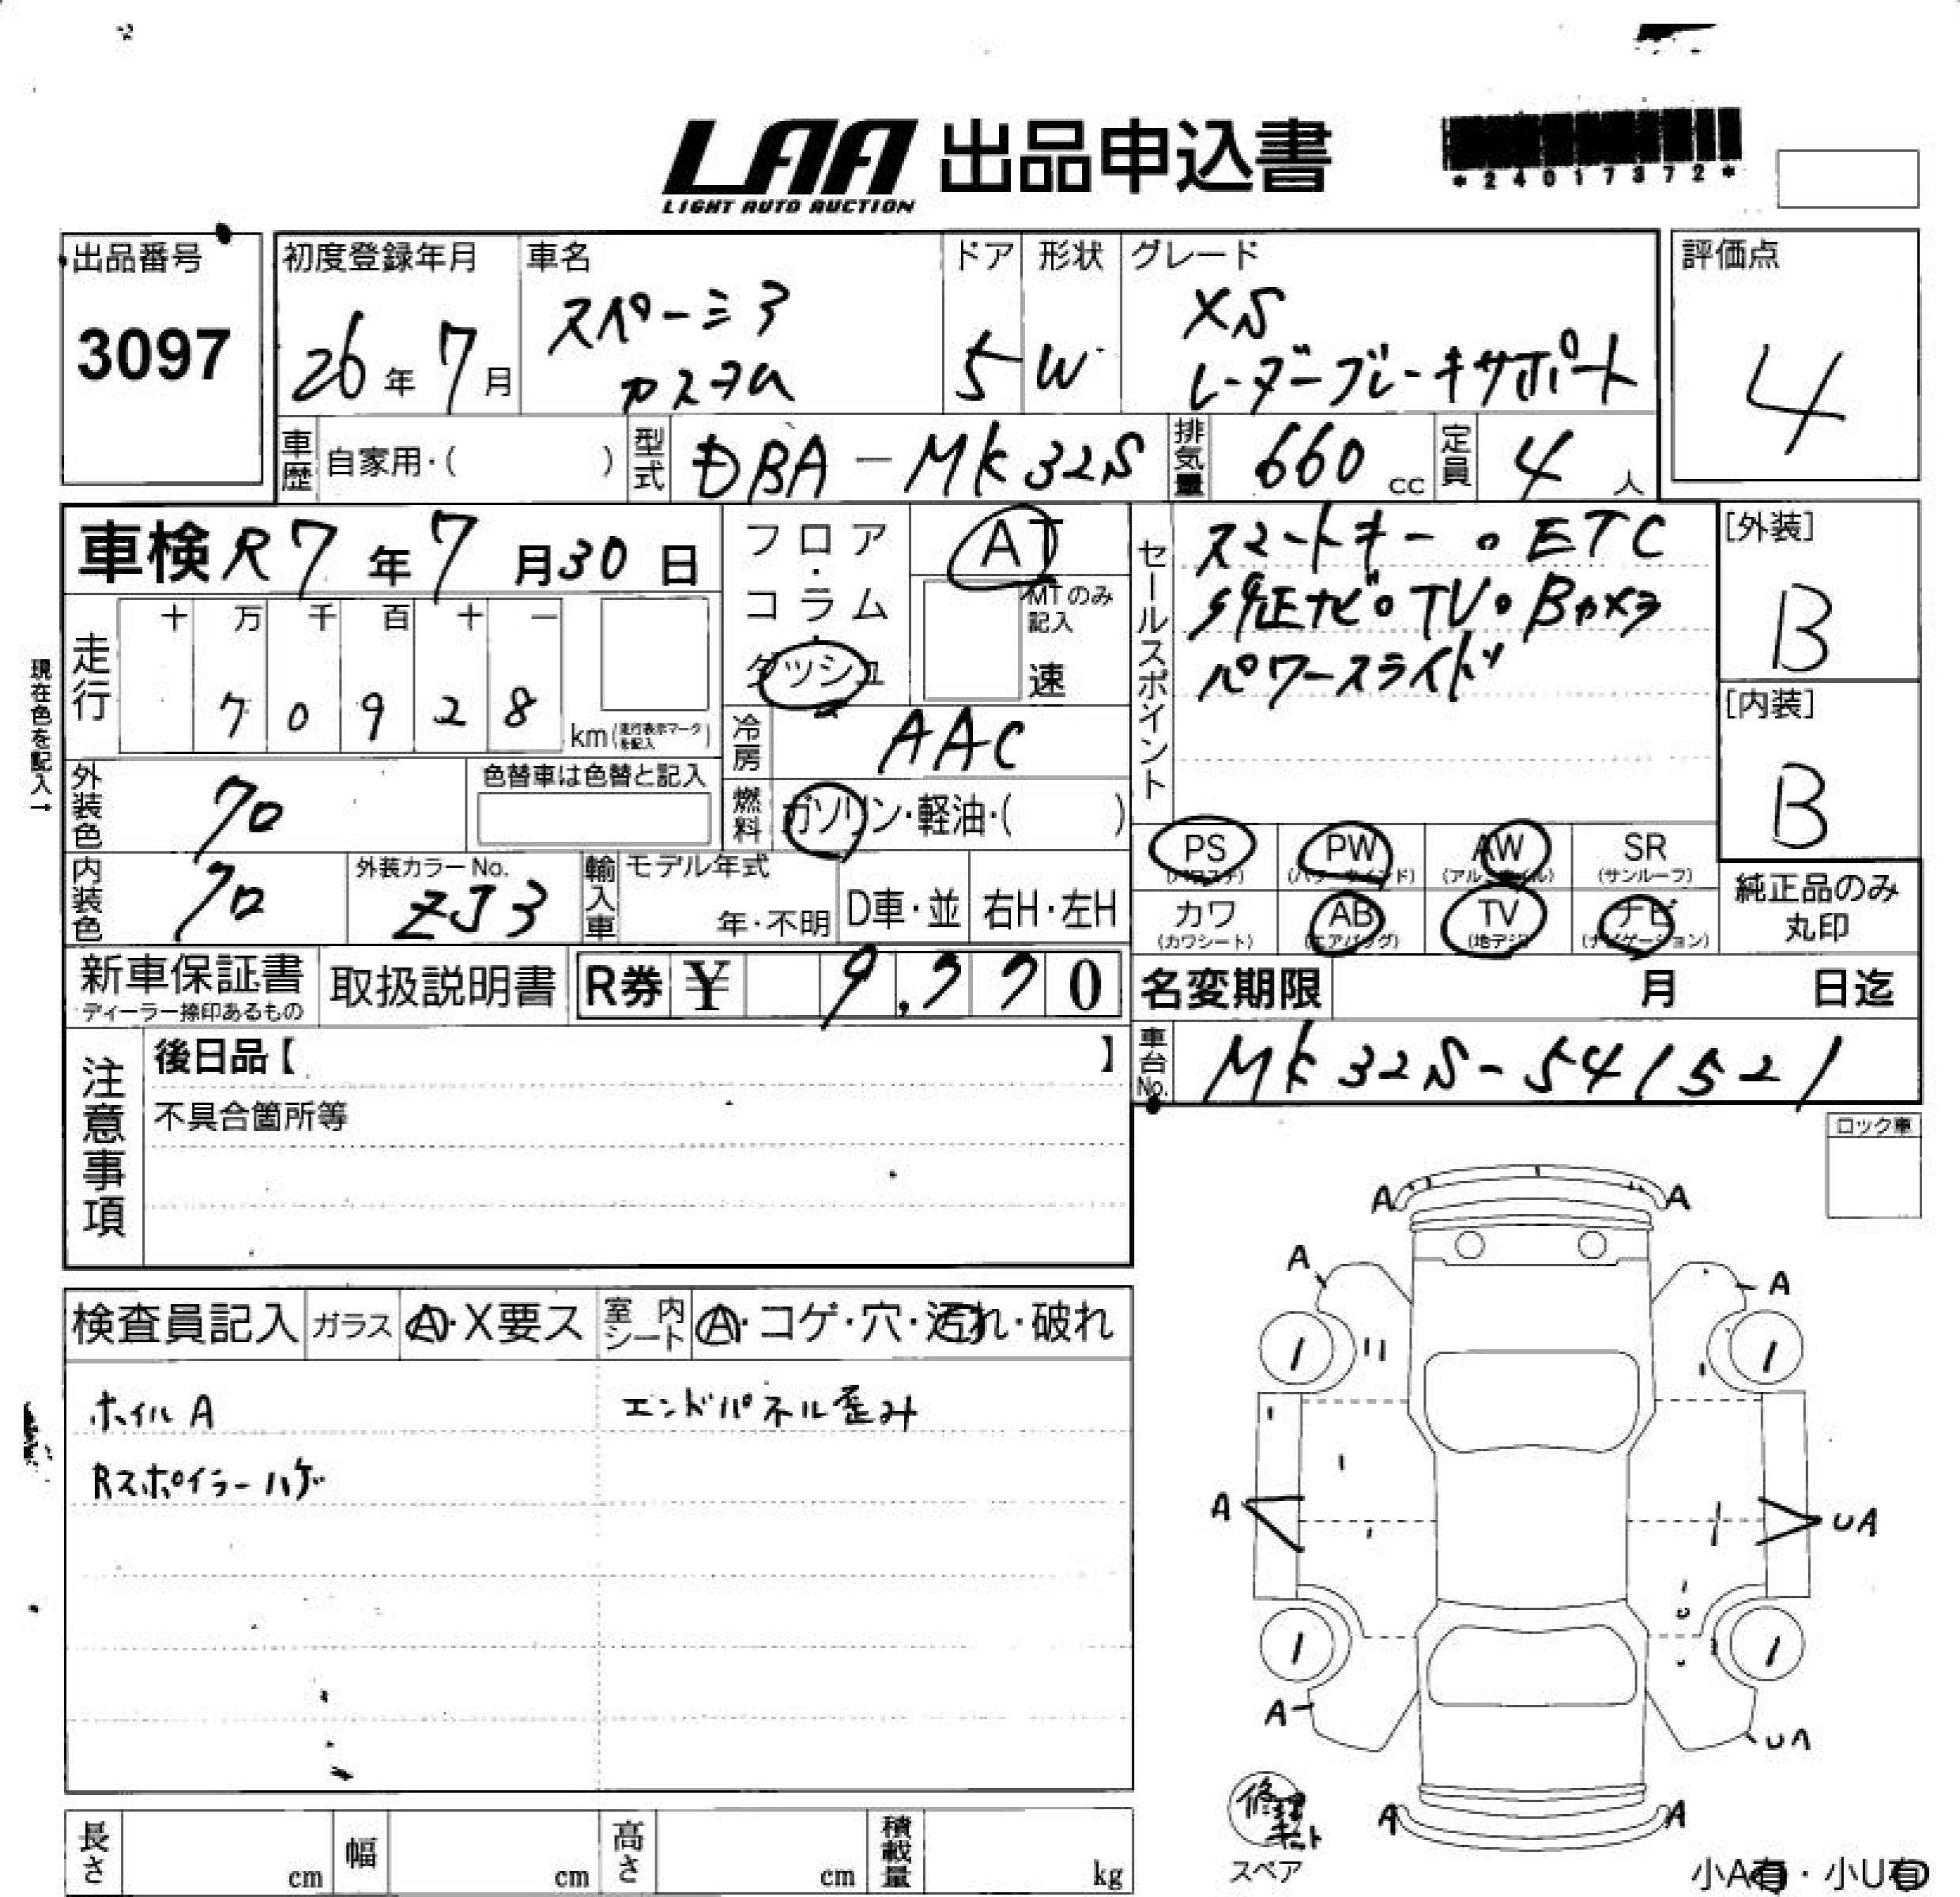 LAA 出品申込書
LIGHT AUTO AUCTION
*24017372*
出品番号
3097
初度登録年月
26年7月
車名
スペーシア
カスタム
ドア
5
形状
W
グレード
XS
レーダーブレーキサポート
評価点
4
車歴 自家用・( )
型式 DBA-MK32S
排気量 660 cc
定員 4 人
車検 R7年7月30日
フロア・コラム・ダッシュ
AT
MTのみ記入
速
セールスポイント
スマートキー。ETC
純正ナビ。TV。Bカメラ
パワースライド
[外装]
B
[内装]
B
現在色を記入→
走行
十 万 千 百 十 一
7 0 9 2 8
km(走行表示マークを記入)
冷房 AAC
外装色 クロ
色替車は色替と記入
燃料 ガソリン・軽油・( )
PS (パワステ)
PW (パワーウインド)
AW (アルミホイル)
SR (サンルーフ)
内装色 クロ
外装カラーNo.
ZJ3
輸入車
モデル年式
年・不明
D車・並
右H・左H
カワ (カワシート)
AB (エアバッグ)
TV (地デジ)
ナビ (ナビゲーション)
純正品のみ丸印
新車保証書
ディーラー捺印あるもの
取扱説明書
R券 ¥ 9,770
名変期限 月 日迄
車台No. MK32S-541521
注意事項
後日品【 】
不具合箇所等
ロック車
検査員記入
ガラス A・X要ス
室内シート A・コゲ・穴・汚れ・破れ
ホイルA
エンドパネル歪み
Rスポイラーハゲ
A A
A A
1 1
A UA
1 1
A UA
A A
修理キット
スペア
小A有・小U有
長さ cm
幅 cm
高さ cm
積載量 kg